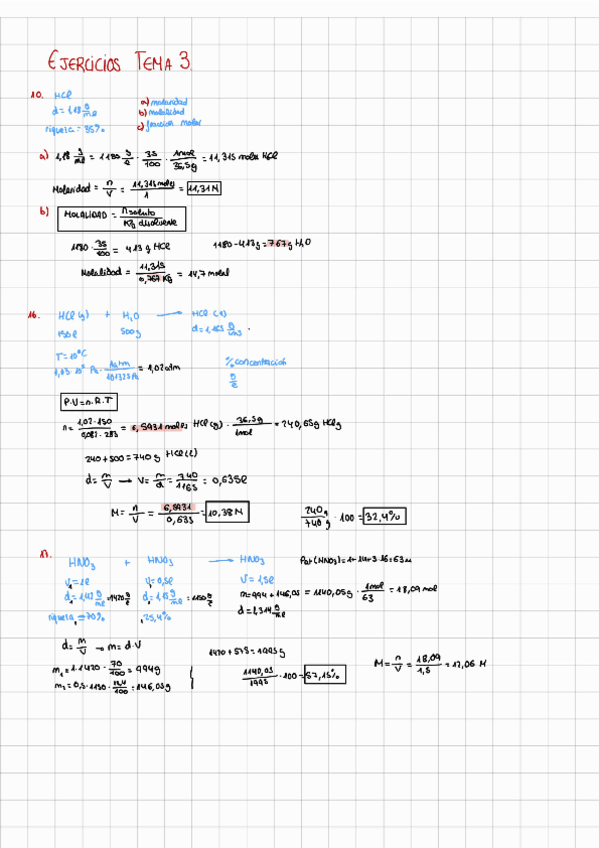 EJERCICIOS TEMA 3.
10. HCl
d = 1,18 g/ml
riqueza = 35%
a) molaridad
b) molalidad
c) fraccion molar
a) 1,18 g/ml = 1180 g/l · 35/100 · 1mol/36,5g = 11,315 moles HCl
Molaridad = n/V = 11,315 moles/1 = 11,31 M
b) MOLALIDAD = n soluto/Kg disolvente
1180 · 35/100 = 413 g HCl
1180 - 413 g = 767 g H2O
Molalidad = 11,315/0,767 Kg = 14,7 molal
16. HCl (g) + H2O → HCl (l)
150 l 500 g d = 1,165 g/
T = 10ºC
· 1atm/101325Pa = 1,02 atm
% concentración
g/l
P.V = n.R.T
n = 1,02 · 150/0,082 · 283 = 6,5931 moles HCl (g) · 36,5g/1mol = 240,65g HCl g
240 + 500 = 740 g HCl (l)
d = m/V → V = m/d = 740/1165 = 0,635 l
M = n/V = 6,5931/0,635 = 10,38 M
240 g/740 g · 100 = 32,4%
17. HNO3 + HNO3 → HNO3
Pat (HNO3) = 1 + 14 + 3 · 16 = 63 u
V1 = 1 l V2 = 0,5 l V = 1,5 l
d1 = 1,42 g/ml = 1420 g/l d2 = 1,15 g/ml = 1150 g/l
m = 994 + 146,05 = 1140,05 g · 1mol/63 = 18,09 mol
riqueza1 = 70% 25,4%
d = 1,314 g/ml
d = m/V → m = d · V
1420 + 575 = 1995 g
m1 = 1 · 1420 · 70/100 = 994 g
m2 = 0,5 · 1150 · 25,4/100 = 146,05 g
1140,05/1995 · 100 = 57,15%
M = n/V = 18,09/1,5 = 12,06 M